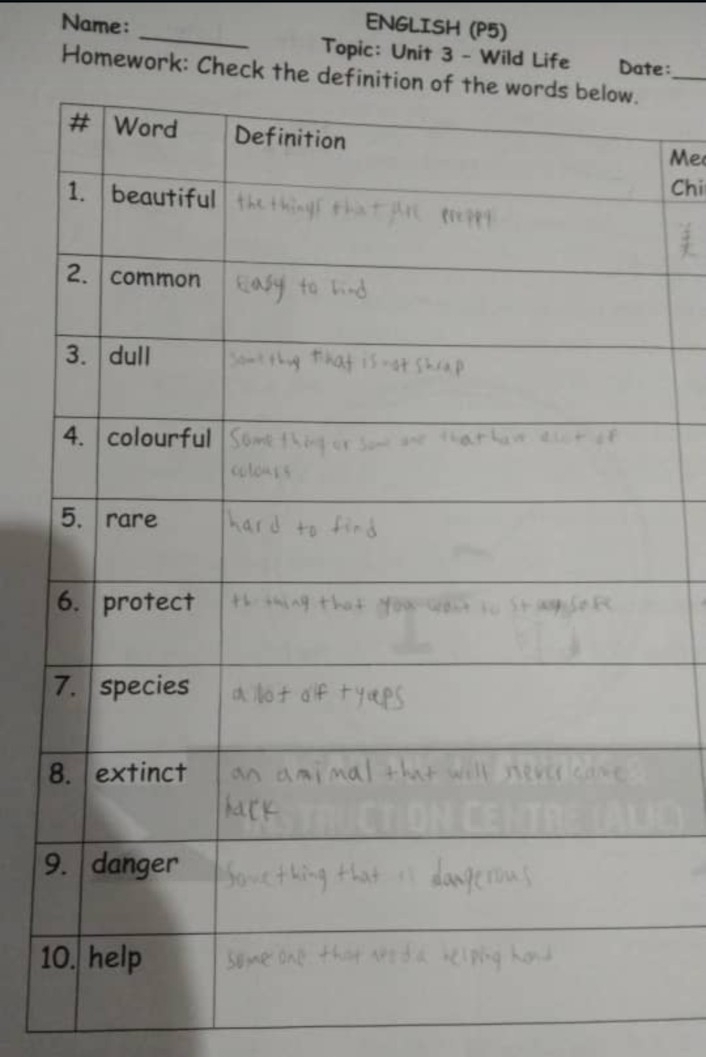 ENGLISH (P5)
Name:
Topic: Unit 3 - Wild Life
Date:
Homework: Check the definition of the words below.
# Word Definition
Mea
Chi
1. beautiful the things that are preppy
美
2. common easy to find
3. dull something that is not sharp
4. colourful Something or some one that have alot of
colours
5. rare hard to find
6. protect thing that you want to stay safe
7. species a lot off tyeps
8. extinct an animal that will never came
back
9. danger Something that is dangerous
10. help some one that need a helping hand